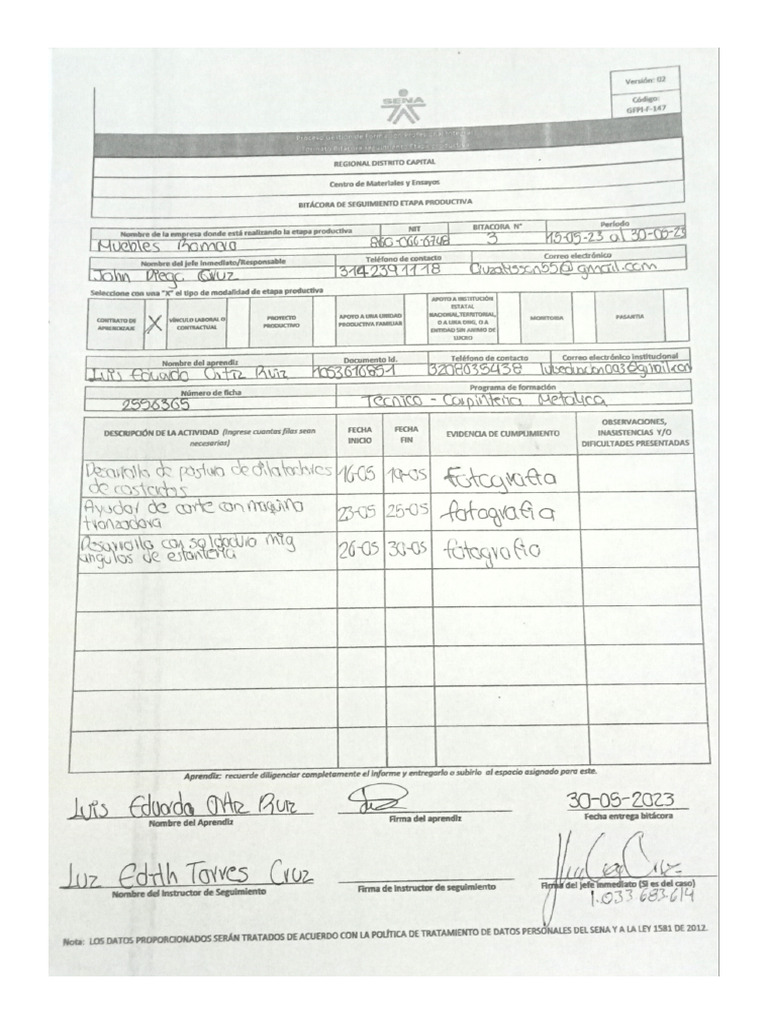 Versión: 02
Código:
GFPI-F-147
SENA
REGIONAL DISTRITO CAPITAL
Centro de Materiales y Ensayos
BITÁCORA DE SEGUIMIENTO ETAPA PRODUCTIVA
Nombre de la empresa donde está realizando la etapa productiva NIT BITACORA N° Período
Muebles Romero 860-066-6748 3 15-05-23 al 30-05-23
Nombre del jefe inmediato/Responsable Teléfono de contacto Correo electrónico
John Diego Cruz 3142391118
Seleccione con una "X" el tipo de modalidad de etapa productiva
CONTRATO DE APRENDIZAJE X VÍNCULO LABORAL O CONTRACTUAL PROYECTO PRODUCTIVO APOYO A UNA UNIDAD PRODUCTIVA FAMILIAR APOYO A INSTITUCIÓN ESTATAL NACIONAL, TERRITORIAL, O A UNA ONG, O A ENTIDAD SIN ANIMO DE LUCRO MONITORIA PASANTIA
Nombre del aprendiz Documento Id. Teléfono de contacto Correo electrónico institucional
Luis Eduardo Ortiz Ruiz 1053616851 3208635438
Número de ficha Programa de formación
2556365 Tecnico - Carpinteria Metalica
DESCRIPCIÓN DE LA ACTIVIDAD (Ingrese cuantas filas sean necesarias) FECHA INICIO FECHA FIN EVIDENCIA DE CUMPLIMIENTO OBSERVACIONES, INASISTENCIAS Y/O DIFICULTADES PRESENTADAS
Desarrollo de postura de
de costados 16-05 19-05 fotografia
Ayudar de corte con maquina
tronzadora 23-05 25-05 fotografia
Desarrollo con soldadura mig
angulos de estanteria 26-05 30-05 fotografia
Aprendiz: recuerde diligenciar completamente el informe y entregarlo o subirlo al espacio asignado para este.
Luis Eduardo Ortiz Ruiz 30-05-2023
Nombre del Aprendiz Firma del aprendiz Fecha entrega bitácora
Luz Edith Torres Cruz
Nombre del Instructor de Seguimiento Firma de Instructor de seguimiento Firma del jefe inmediato (Si es del caso)
1.033 683-614
Nota: LOS DATOS PROPORCIONADOS SERÁN TRATADOS DE ACUERDO CON LA POLÍTICA DE TRATAMIENTO DE DATOS PERSONALES DEL SENA Y A LA LEY 1581 DE 2012.